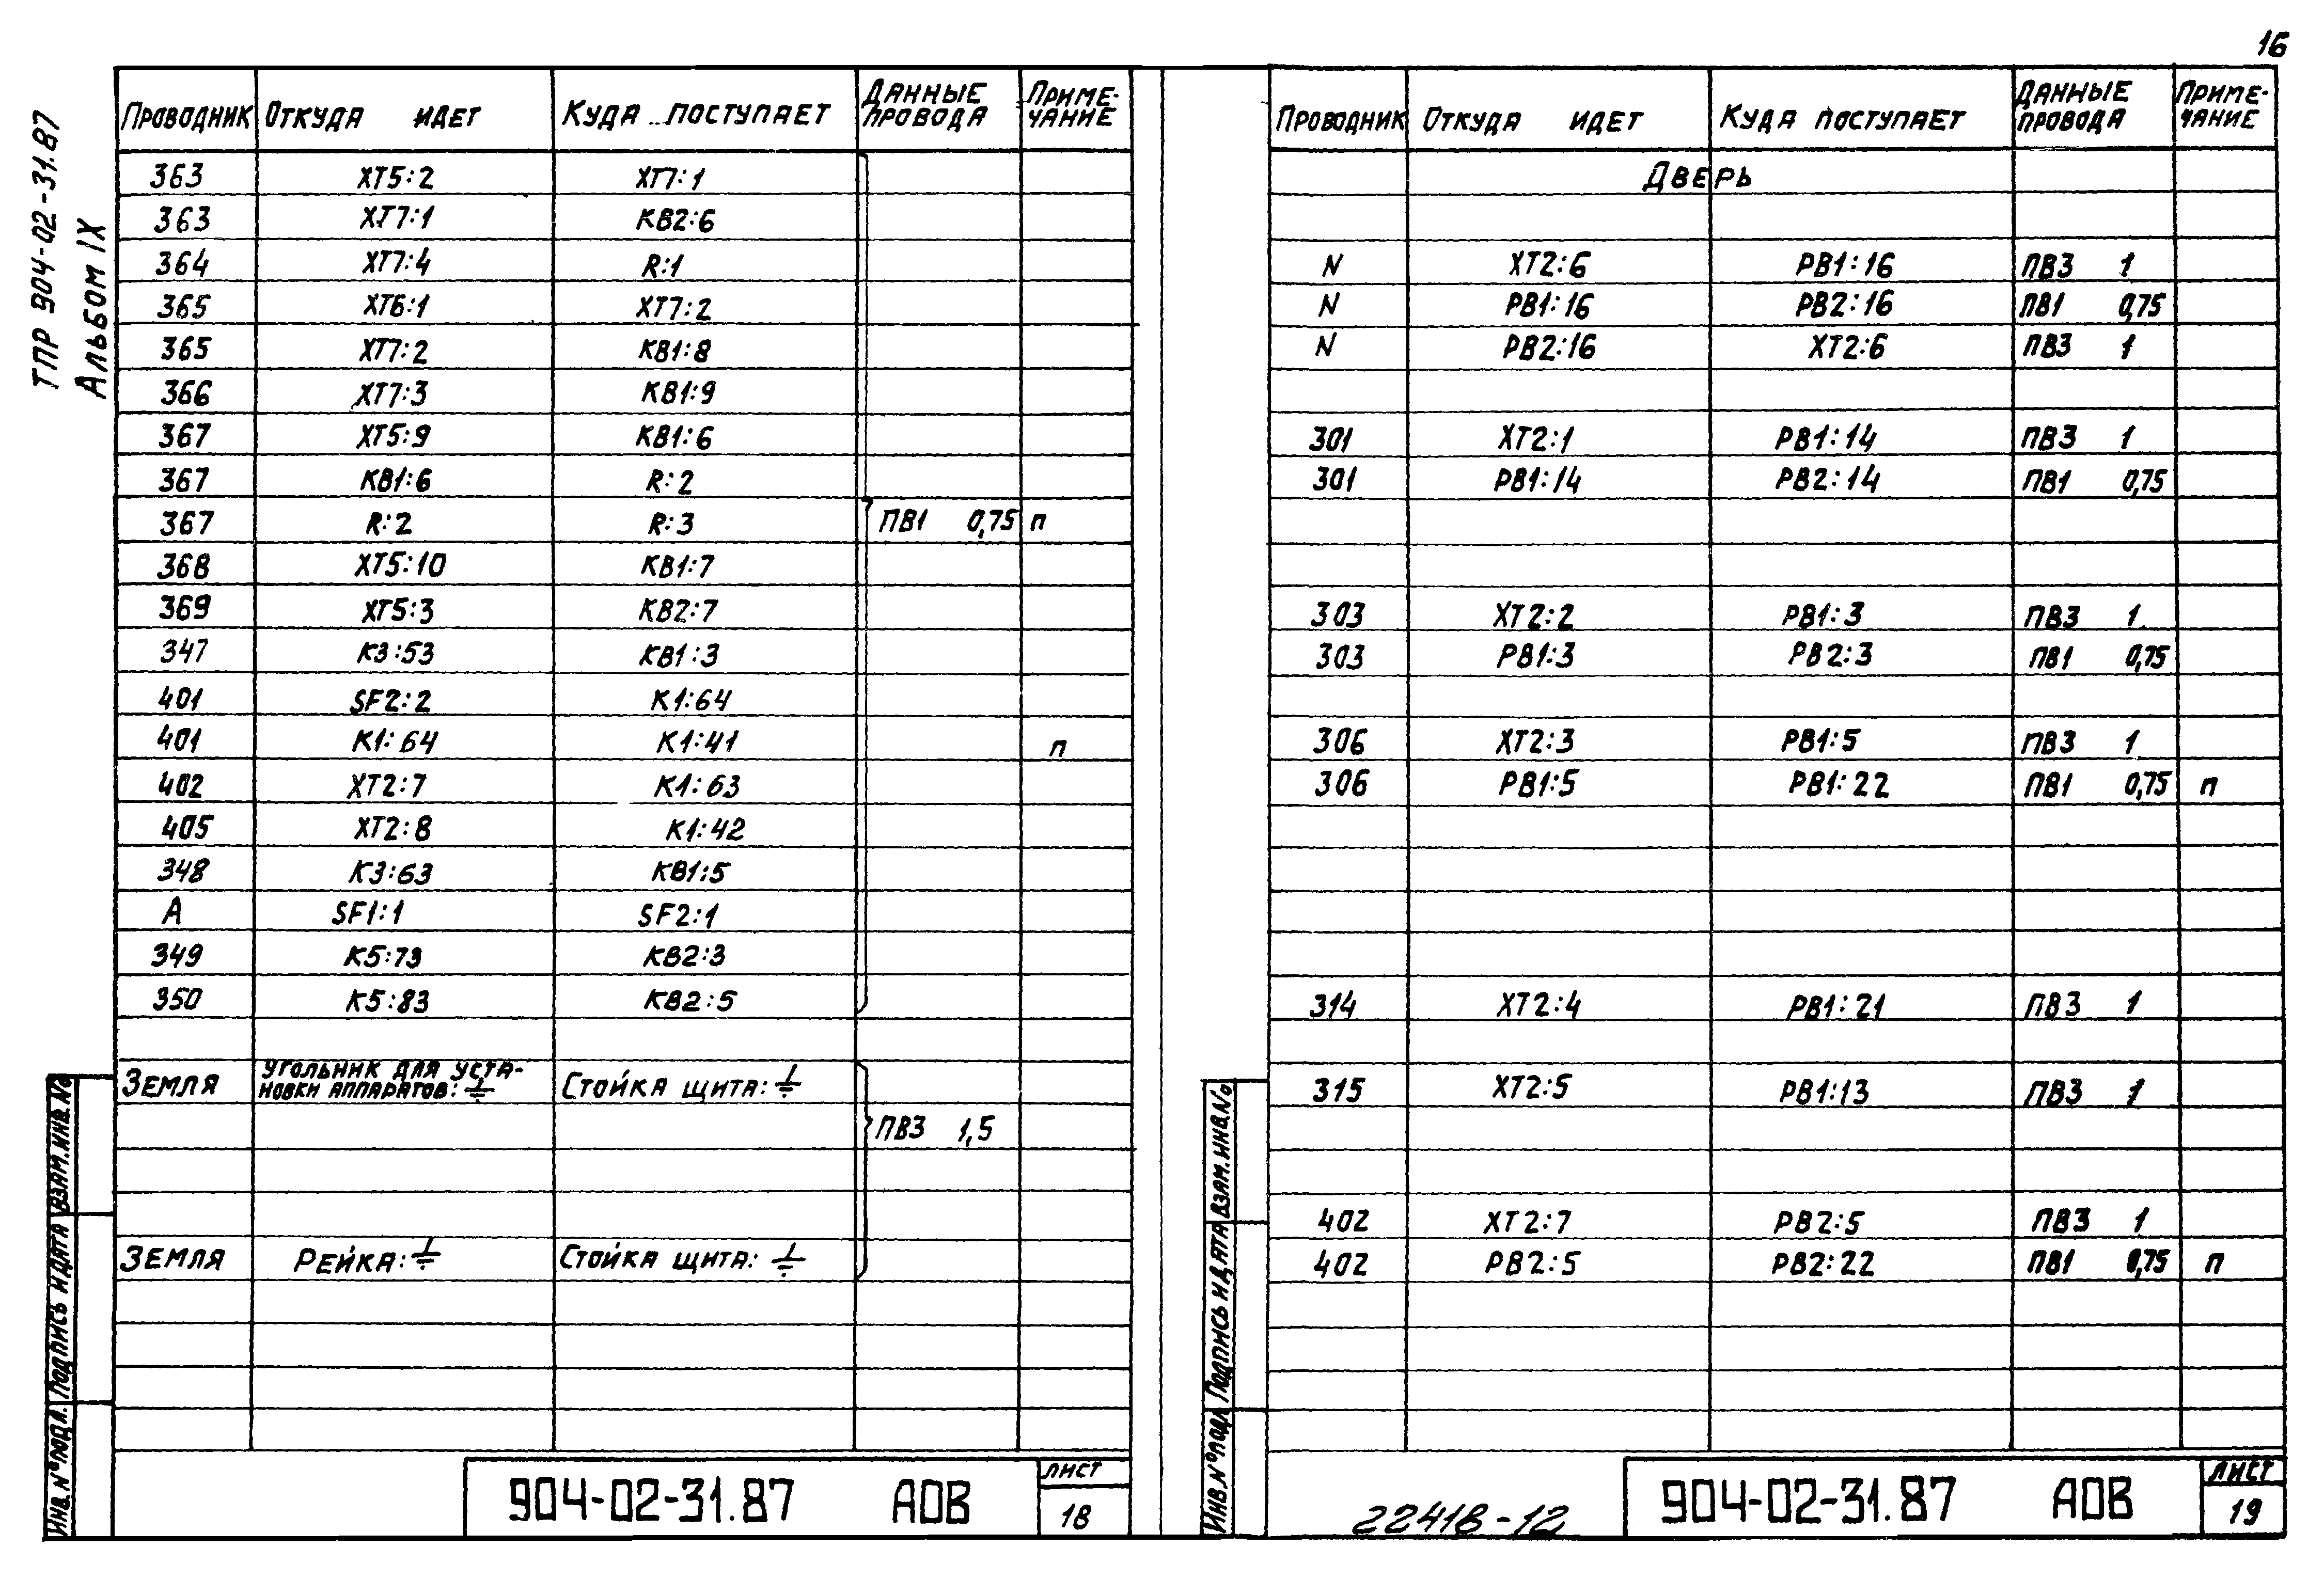 16
ТПР 904-02-31.87
Альбом IX
Проводник Откуда идет Куда поступает Данные провода Примечание
363 ХТ5:2 ХТ7:1
363 ХТ7:1 КВ2:6
364 ХТ7:4 R:1
365 ХТ6:1 ХТ7:2
365 ХТ7:2 КВ1:8
366 ХТ7:3 КВ1:9
367 ХТ5:9 КВ1:6
367 КВ1:6 R:2
367 R:2 R:3 ПВ1 0,75 п
368 ХТ5:10 КВ1:7
369 ХТ5:3 КВ2:7
347 К3:53 КВ1:3
401 SF2:2 К1:64
401 К1:64 К1:41 п
402 ХТ2:7 К1:63
405 ХТ2:8 К1:42
348 К3:63 КВ1:5
А SF1:1 SF2:1
349 К5:73 КВ2:3
350 К5:83 КВ2:5
Земля Угольник для уста-
новки аппаратов:⏚ Стойка щита:⏚
ПВ3 1,5
Земля Рейка:⏚ Стойка щита:⏚
Инв. № подл. Подпись и дата Взам. инв. №
904-02-31.87 АОВ
Лист
18
Проводник Откуда идет Куда поступает Данные провода Примечание
Дверь
N ХТ2:6 РВ1:16 ПВ3 1
N РВ1:16 РВ2:16 ПВ1 0,75
N РВ2:16 ХТ2:6 ПВ3 1
301 ХТ2:1 РВ1:14 ПВ3 1
301 РВ1:14 РВ2:14 ПВ1 0,75
303 ХТ2:2 РВ1:3 ПВ3 1
303 РВ1:3 РВ2:3 ПВ1 0,75
306 ХТ2:3 РВ1:5 ПВ3 1
306 РВ1:5 РВ1:22 ПВ1 0,75 п
314 ХТ2:4 РВ1:21 ПВ3 1
315 ХТ2:5 РВ1:13 ПВ3 1
402 ХТ2:7 РВ2:5 ПВ3 1
402 РВ2:5 РВ2:22 ПВ1 0,75 п
Инв. № подл Подпись и дата Взам. инв. №
22418-12
904-02-31.87 АОВ
Лист
19